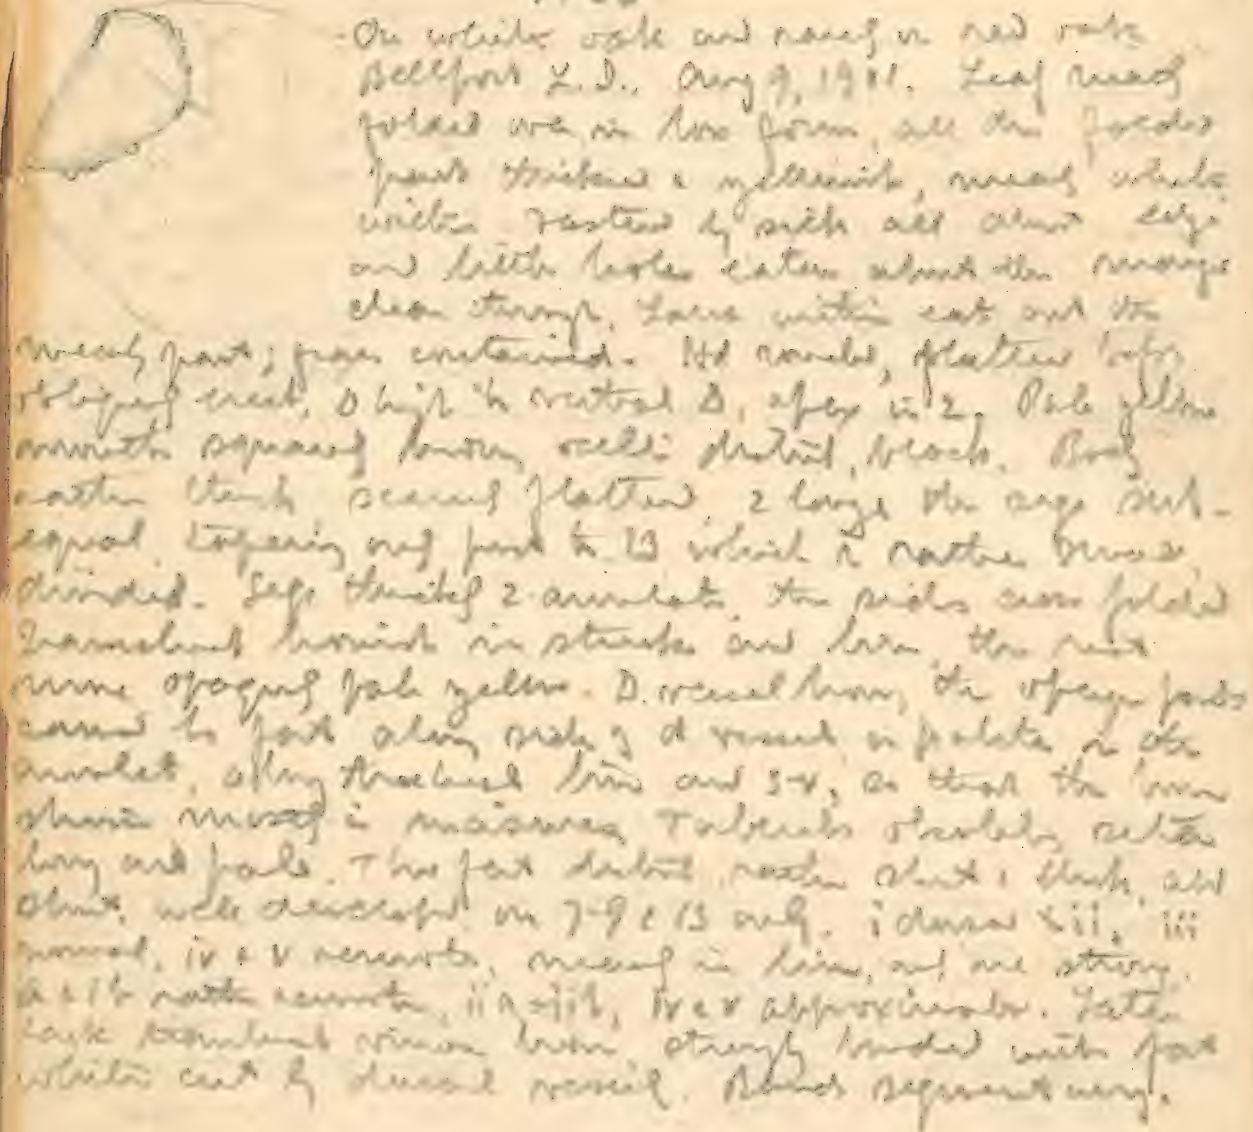 On white oak and rarely on red oak
Bellport L.I., Aug 9, 1901. Leaf nearly
folded over, in box form, all the folded
part thickened & yellowish, nearly white
within fastened by silk all about edge
and little holes eaten about the margin
clean through, Larva within eats out the
part; frass contained. Hd rounded, flattened before
oblique, erect, high to vertical D, apex in 2. Pale yellow
mouth squarely brown, ocelli distinct, black. Body
rather thick scarcely flattened, 2 large the segs sub-
equal, tapering only part to 13 which is rather small,
divided. Segs thickly 2-annulate, the sides cross folded
Translucent brownish in streaks and brown, the rest
more opaquely pale yellow. D. vessel brown, the opaque parts
to part along side of d vessel in patches on the
annulets, along tracheal line and s-v, so that the brown
shows mostly in incisures. Tubercles obsolete, setae
long and pale. Th. feet distinct, rather short & thick, abd
short, well developed on 7-9 & 13 only. i dorsad to ii, iii
normal, iv & v remote, nearly in line, vi one strong.
ia & ib rather remote, iia = iib, iv & v approximate. Later
translucent brown, strongly banded with fat
white cut by dorsal vessel. Bands segmentary.